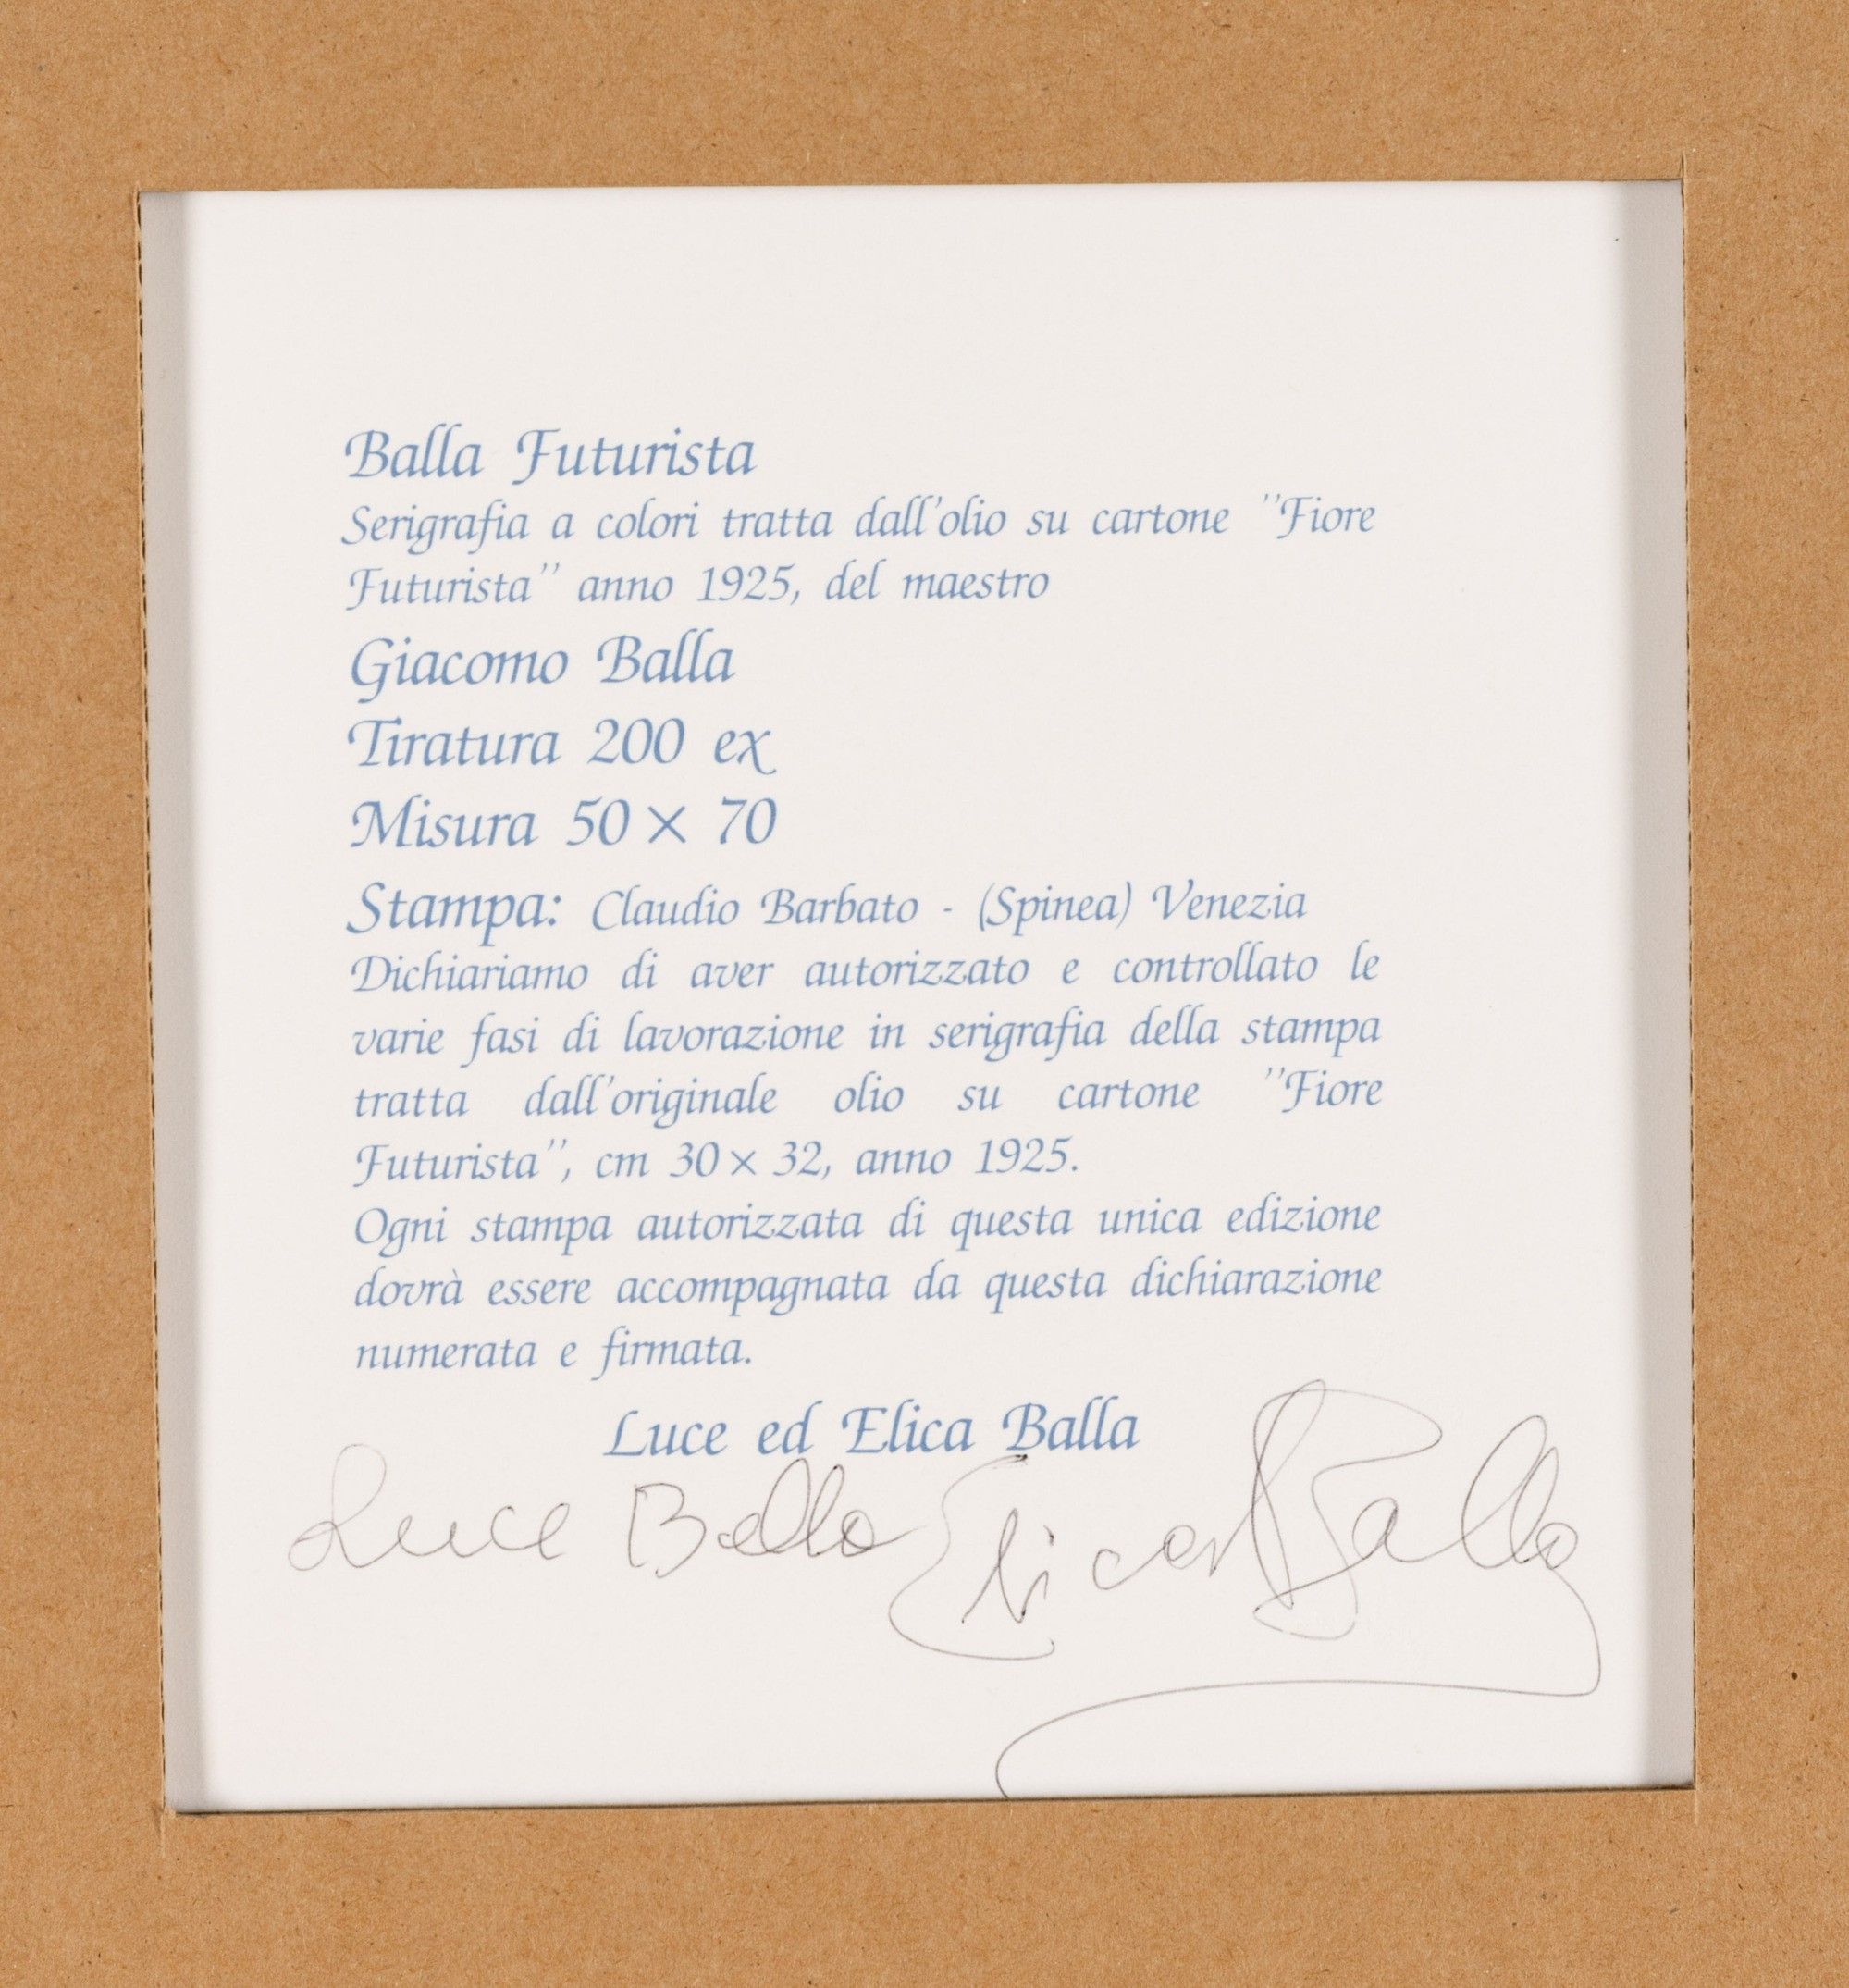 Balla Futurista
Serigrafia a colori tratta dall'olio su cartone "Fiore
Futurista" anno 1925, del maestro
Giacomo Balla
Tiratura 200 ex
Misura 50 × 70
Stampa: Claudio Barbato - (Spinea) Venezia
Dichiariamo di aver autorizzato e controllato le
varie fasi di lavorazione in serigrafia della stampa
tratta dall'originale olio su cartone "Fiore
Futurista", cm 30 × 32, anno 1925.
Ogni stampa autorizzata di questa unica edizione
dovrà essere accompagnata da questa dichiarazione
numerata e firmata.
Luce ed Elica Balla
Luce Balla Elica Balla